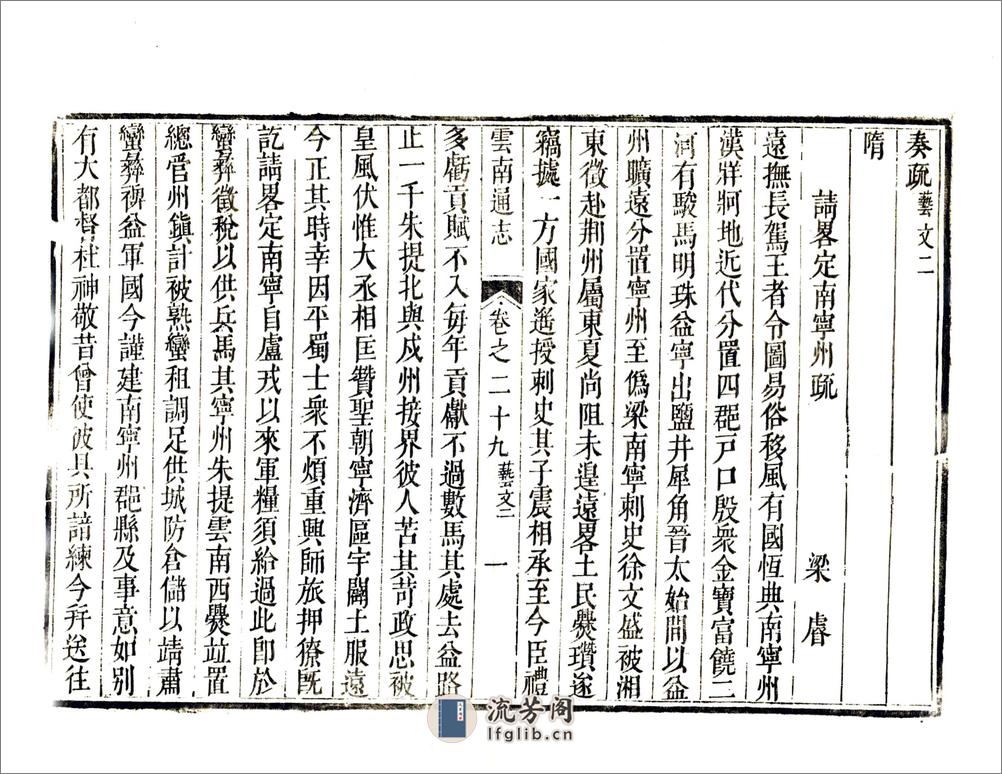 奏疏藝文二
隋
請畧定南寧州疏 梁睿
遠撫長駕王者令圖易俗移風有國恆典南寧州
漢牂牁地近代分置四郡戸口殷衆金寶富饒二
河有駿馬明珠益寧出鹽井犀角晉太始間以益
州曠遠分置寧州至僞梁南寧刺史徐文盛被湘
東徵赴荆州屬東夏尚阻未遑遠畧土民爨瓚遂
竊據一方國家遙授刺史其子震相承至今臣禮
雲南通志 卷之二十九 藝文二 一
多虧貢賦不入每年貢獻不過數馬其處去益路
止一千朱提北與戍州接界彼人苦其苛政思被
皇風伏惟大丞相匡贊聖朝寧濟區宇闢土服遠
今正其時幸因平蜀士衆不煩重興師旅押獠既
訖請畧定南寧自盧戎以來軍糧須給過此即於
蠻彝徵稅以供兵馬其寧州朱提雲南西爨竝置
總管州鎮計被熟蠻租調足供城防倉儲以靖肅
蠻彝裨益軍國今謹建南寧州郡縣及事意如别
有大都督杜神敬昔曾使彼具所諳練今幷送往
流芳阁
lfglib.cn